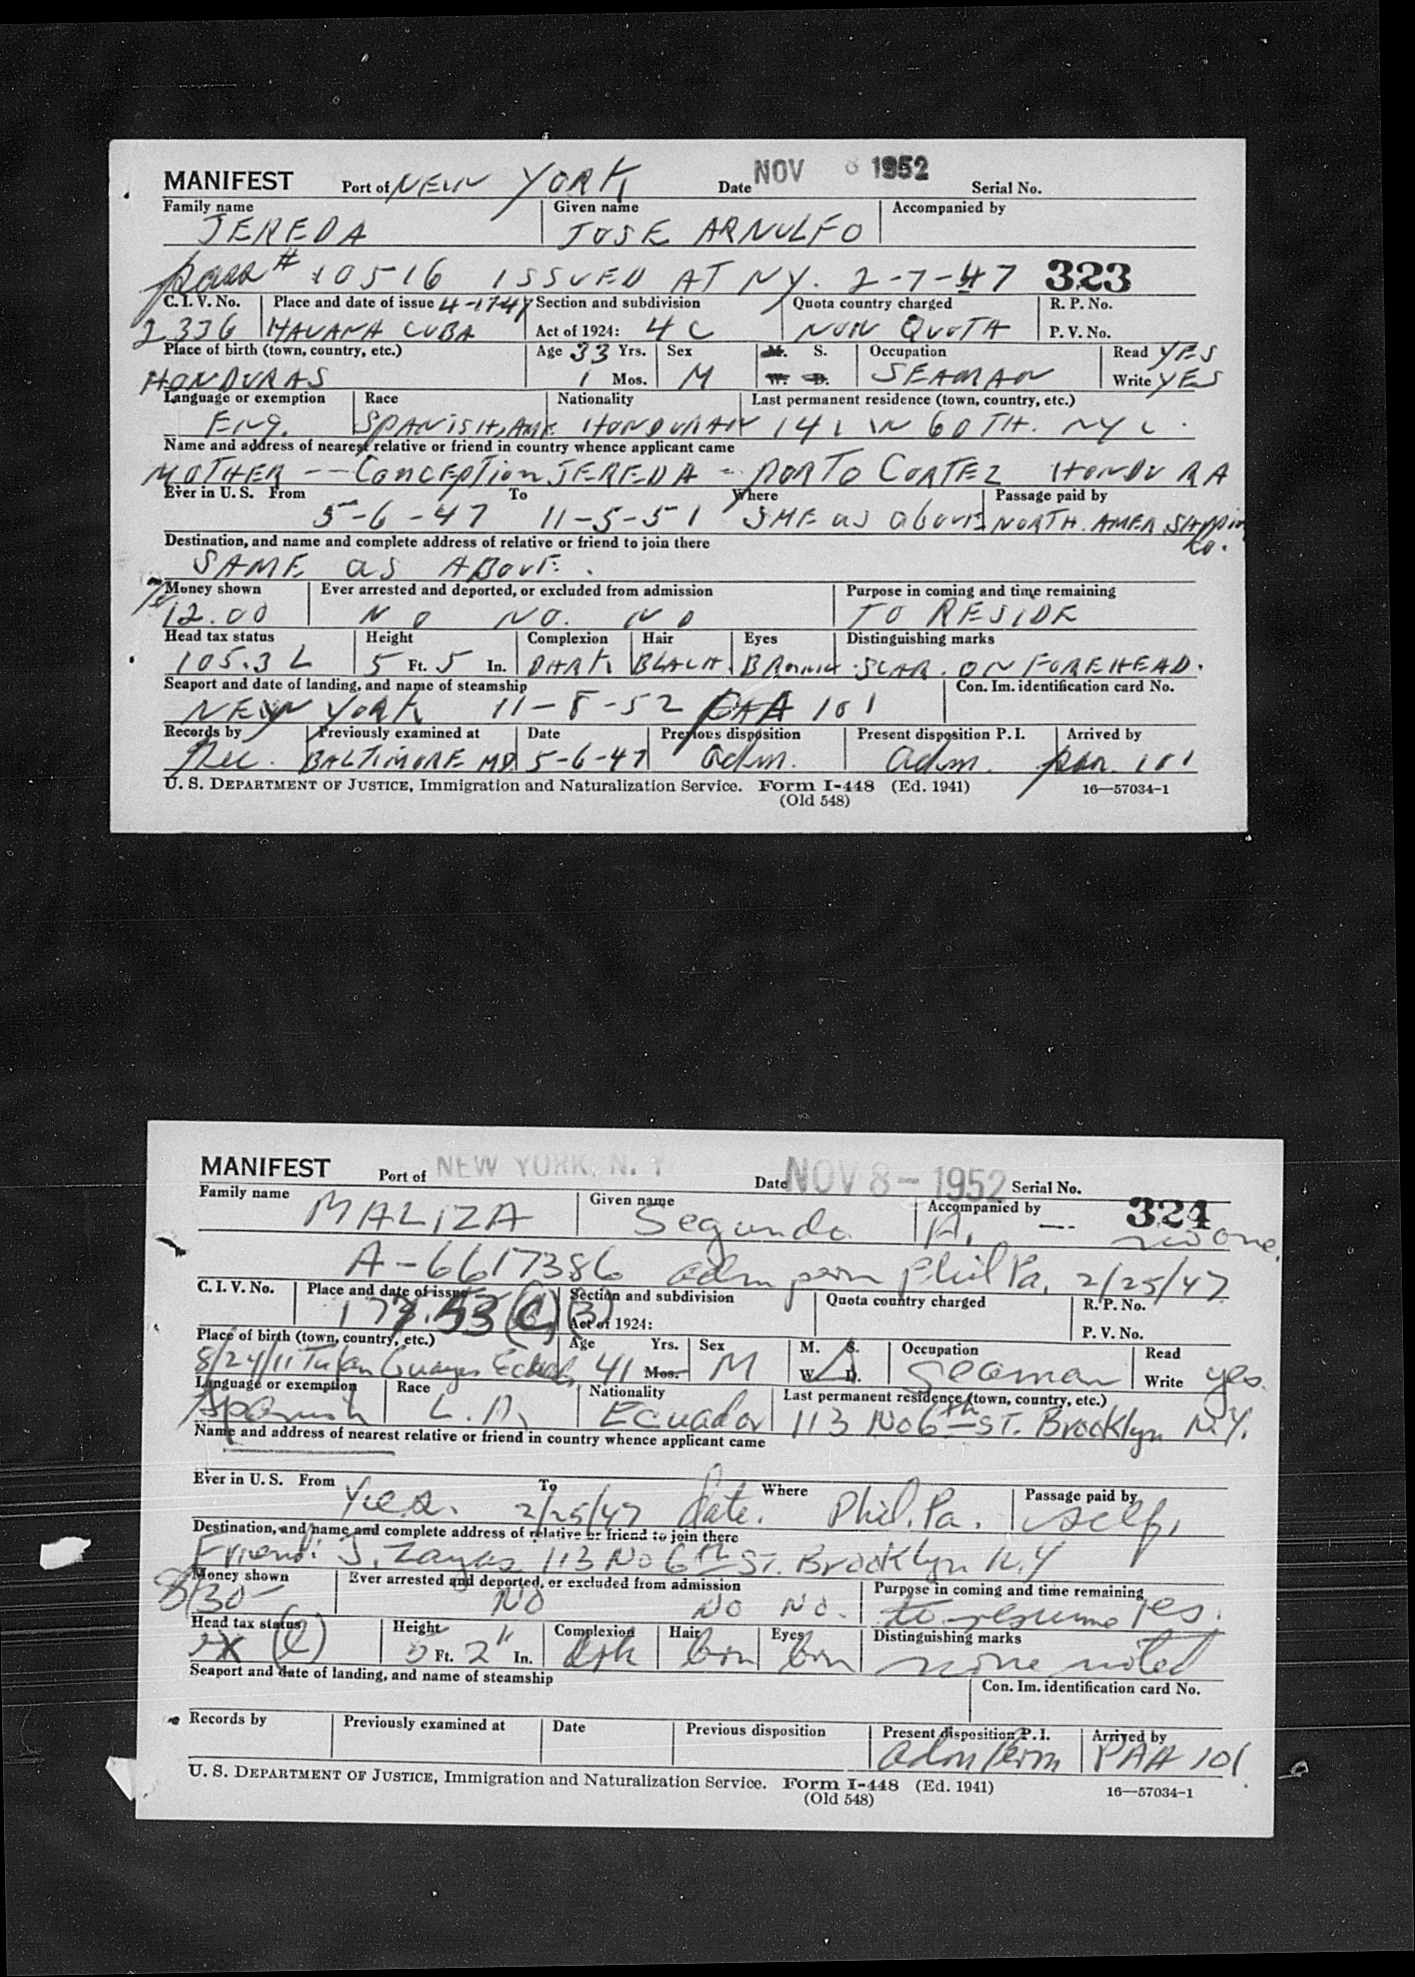 MANIFEST Port of NEW YORK Date NOV 8 1952 Serial No.
Family name Given name Accompanied by
JEREDA JOSE ARNULFO
pass # 10516 ISSUED AT NY. 2-7-47 323
C. I. V. No. Place and date of issue 4-17-47 Section and subdivision Quota country charged R. P. No.
2336 HAVANA CUBA Act of 1924: 4 C NON QUOTA P. V. No.
Place of birth (town, country, etc.) Age 33 Yrs. Sex M. S. Occupation Read YES
HONDURAS 1 Mos. M W. D. SEAMAN Write YES
Language or exemption Race Nationality Last permanent residence (town, country, etc.)
Eng. SPANISH, AME HONDURAN 141 W 60 TH. NYC.
Name and address of nearest relative or friend in country whence applicant came
MOTHER -- Conception JEREDA - PORTO CORTEZ HONDURA
Ever in U. S. From To Where Passage paid by
5-6-47 11-5-51 SME as above NORTH. AMER Shippin Co.
Destination, and name and complete address of relative or friend to join there
SAME as ABOVE.
Money shown Ever arrested and deported, or excluded from admission Purpose in coming and time remaining
12.00 NO NO. NO TO RESIDE
Head tax status Height Complexion Hair Eyes Distinguishing marks
105.3 L 5 Ft. 5 In. DARK BLACK. BROWN SCAR. ON FOREHEAD.
Seaport and date of landing, and name of steamship Con. Im. identification card No.
NEW YORK 11-8-52 PAA 101
Records by Previously examined at Date Previous disposition Present disposition P. I. Arrived by
Rec. BALTIMORE MD 5-6-47 adm. adm. pan. 101
U. S. DEPARTMENT OF JUSTICE, Immigration and Naturalization Service. Form I-448 (Ed. 1941) 16—57034-1
(Old 548)
MANIFEST Port of NEW YORK, N. Y Date NOV 8 - 1952 Serial No.
Family name Given name Accompanied by 324
MALIZA Segundo A. -- none.
A-6617386 adm perm Phil Pa. 2/25/47
C. I. V. No. Place and date of issue Section and subdivision Quota country charged R. P. No.
Act of 1924: P. V. No.
Place of birth (town, country, etc.) Age Yrs. Sex M. S. Occupation Read
8/24/11 Guayas 41 Mos. M W. D. Seaman Write yes.
Language or exemption Race Nationality Last permanent residence (town, country, etc.)
Spanish L. A. Ecuador 113 No 6th ST. Brooklyn N.Y.
Name and address of nearest relative or friend in country whence applicant came
Ever in U. S. From To Where Passage paid by
Yes. 2/25/47 date. Phil. Pa. self,
Destination, and name and complete address of relative or friend to join there
Friend: J. Zayas 113 No 6th ST. Brooklyn N.Y
Money shown Ever arrested and deported, or excluded from admission Purpose in coming and time remaining
NO NO NO. to resume res.
Head tax status Height Complexion Hair Eyes Distinguishing marks
5 Ft. 2" In. drk brn brn none noted
Seaport and date of landing, and name of steamship Con. Im. identification card No.
Records by Previously examined at Date Previous disposition Present disposition P. I. Arrived by
adm Perm PAA 101
U. S. DEPARTMENT OF JUSTICE, Immigration and Naturalization Service. Form I-448 (Ed. 1941) 16—57034-1
(Old 548)